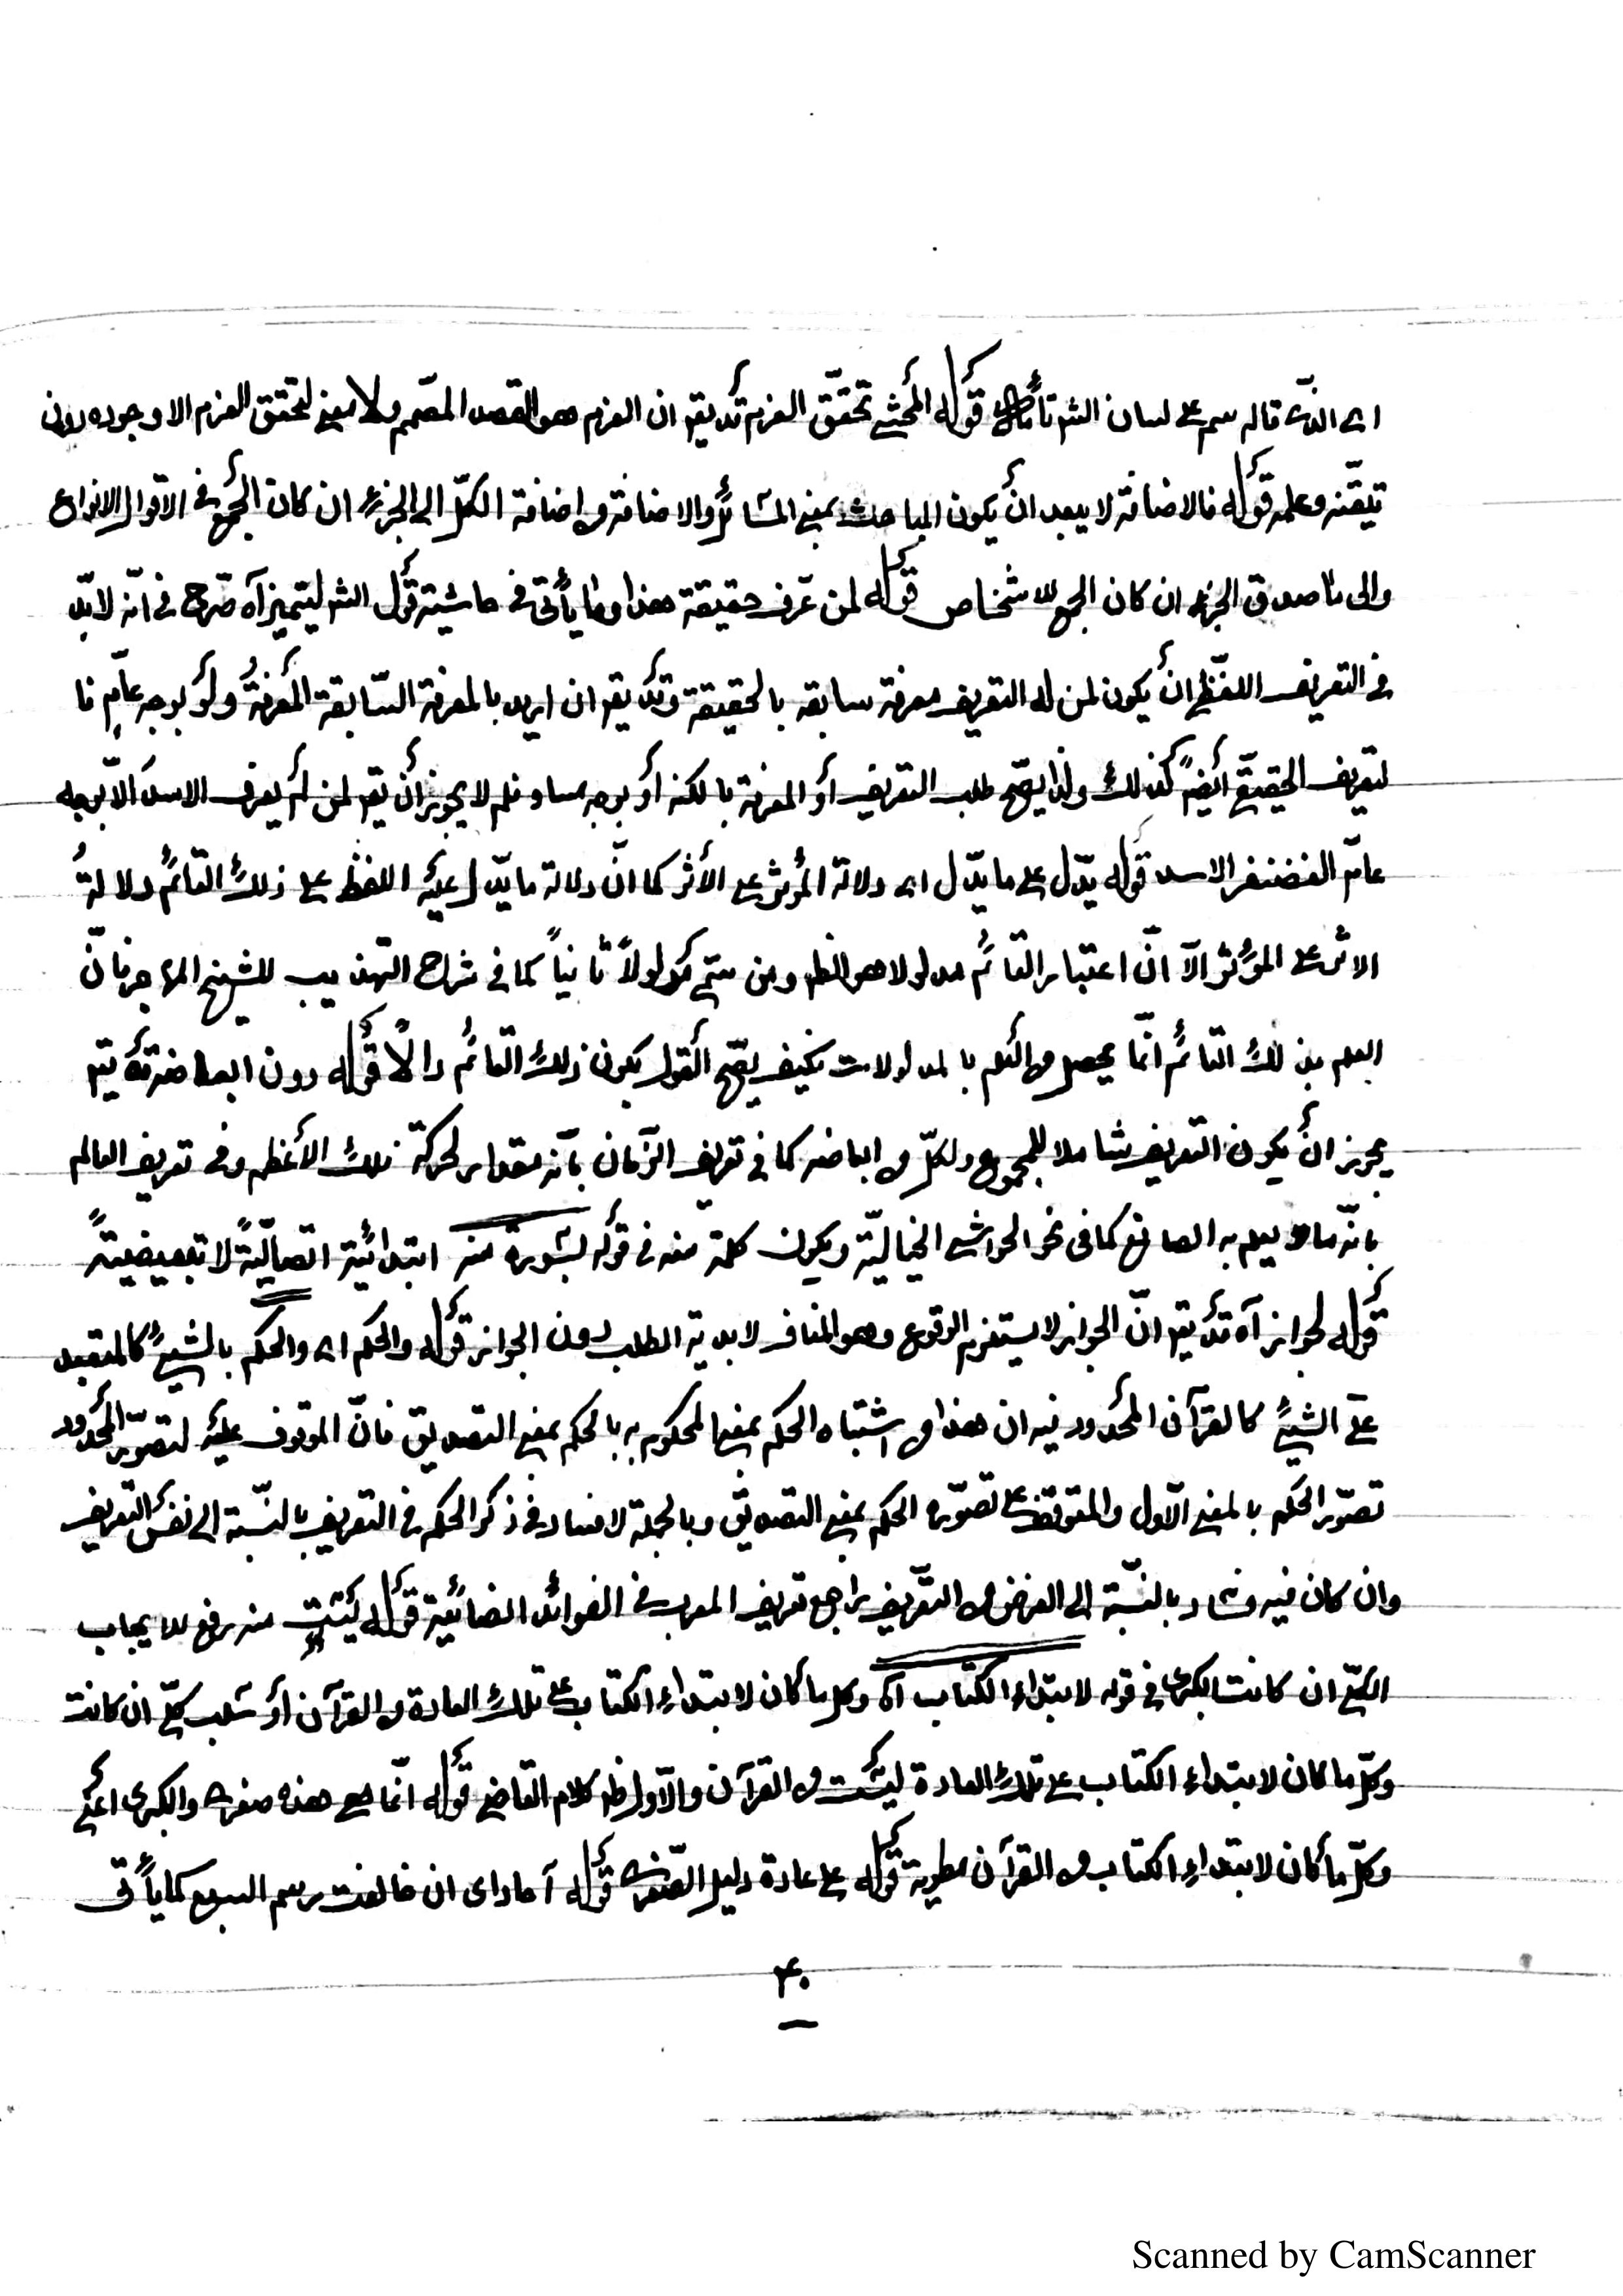 اى الذى قاله سم على لسان الشر تأمل قوله المحشى تحقق العزم قد يقر ان العزم هو القصد المصمم ولا معنى لتحقق العزم الا وجوده بدون
تيقنه وعلمه قوله فالاضافة لا يبعد ان يكون المباحث بمعنى المسائل والاضافة من اضافة الكل الى الجزء ان كان الجمع فى الاقوال للانواع
والى ما صدق الجزء ان كان الجمع للاشخاص قوله لمن عرف حقيقة هذا وما يأتى فى حاشية قول الشر ليتميز آه صرح فى انه لا بد
فى التعريف اللفظى ان يكون لمن له التعريف معرفة سابقة بالحقيقة وقد يقر ان اريد بالمعرفة السابقة المعرفة ولو بوجه عام فا
لتعريف الحقيقى أيضً كذلك ولذا يصح طلب التعريف أو المعرفة بالكنه أو بوجه مساو فلم لا يجوز أن يقر لمن لم يعرف الاسد الا بوجه
عام الغضنفر الاسد قوله يدل على ما يدل اى دلالة المؤثر على الأثر كما انّ دلالة ما يدل عليه اللفظ على ذلك القائم دلالة
الاثر على المؤثر الا انّ اعتبار القائم مدلولا هو الظر ومن ستم مدلولاً ثانياً كما فى شرح التهذيب للشيخ المهاجر فانّ
العلم بذلك القائم انّما يحصل من العلم بالمدلولات فكيف يصح القول بكون ذلك القائم دالاً قوله دون ابعاضه قد يقر
يجوز انْ يكون التعريف شاملا للمجموع ولكلّ من ابعاضه كما فى تعريف الزمان بأنه مقدار لحركة فلك الأعظم وفى تعريف العالم
بانّه ما يعلم به الصانع كما فى نحو الحواشى الخياليّة ويكون كلمة منه فى قوله بسورة منه ابتدائية اتصاليّةً لا تبعيضيةً
قوله لجواز آه قد يقر انّ الجواز لا يستلزم الوقوع وهو المناف لابدية الطلب دون الجواز قوله والحكم اى والحكم بالشيئ كالمتعبد
على الشيئ كالقرآن المحدود فيه ان هذا من اشتباه الحكم بمعنى المحكوم به بالحكم بمعنى التصديق فانّ الموقوف عليه لتصوّر المحدود
تصوّر الحكم بالمعنى الاول والمتوقف على تصوّره الحكم بمعنى التصديق وبالجملة لا فساد فى ذكر الحكم فى التعريف بالنسبة الى نفس التعريف
وان كان فيه فساد بالنسبة الى الغرض من التعريف راجع تعريف المعرب فى الفوائد الضيائية قوله ليثبت منه رفع للايجاب
الكلّى ان كانت الكبرى فى قوله لابتداء الكتاب آه وكل ما كان لابتداء الكتاب على تلك العادة من القرآن أو سلب كلّى ان كانت
وكلّ ما كان لابتداء الكتاب على تلك العادة ليست من القرآن والاول ظر كلام القاضى قوله انّما مع هذه صغرى والكبرى اعنى
وكلّ ما كان لابتداء الكتاب من القرآن مطوية قوله على عادة دليل الصغرى قوله آحادا اى ان خالفت رسم السبع كما يأتى
۴۰
Scanned by CamScanner